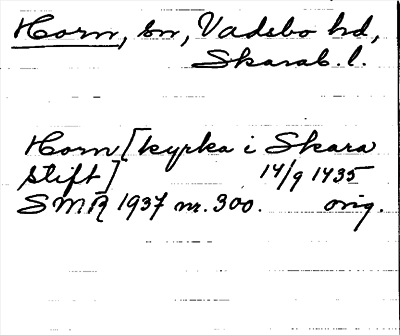 Horn, sn, Vadsbo hd,
Skarab. l.
Horn [kyrka i Skara
Stift] 14/9 1435
SMR 1937 nr. 300. orig.